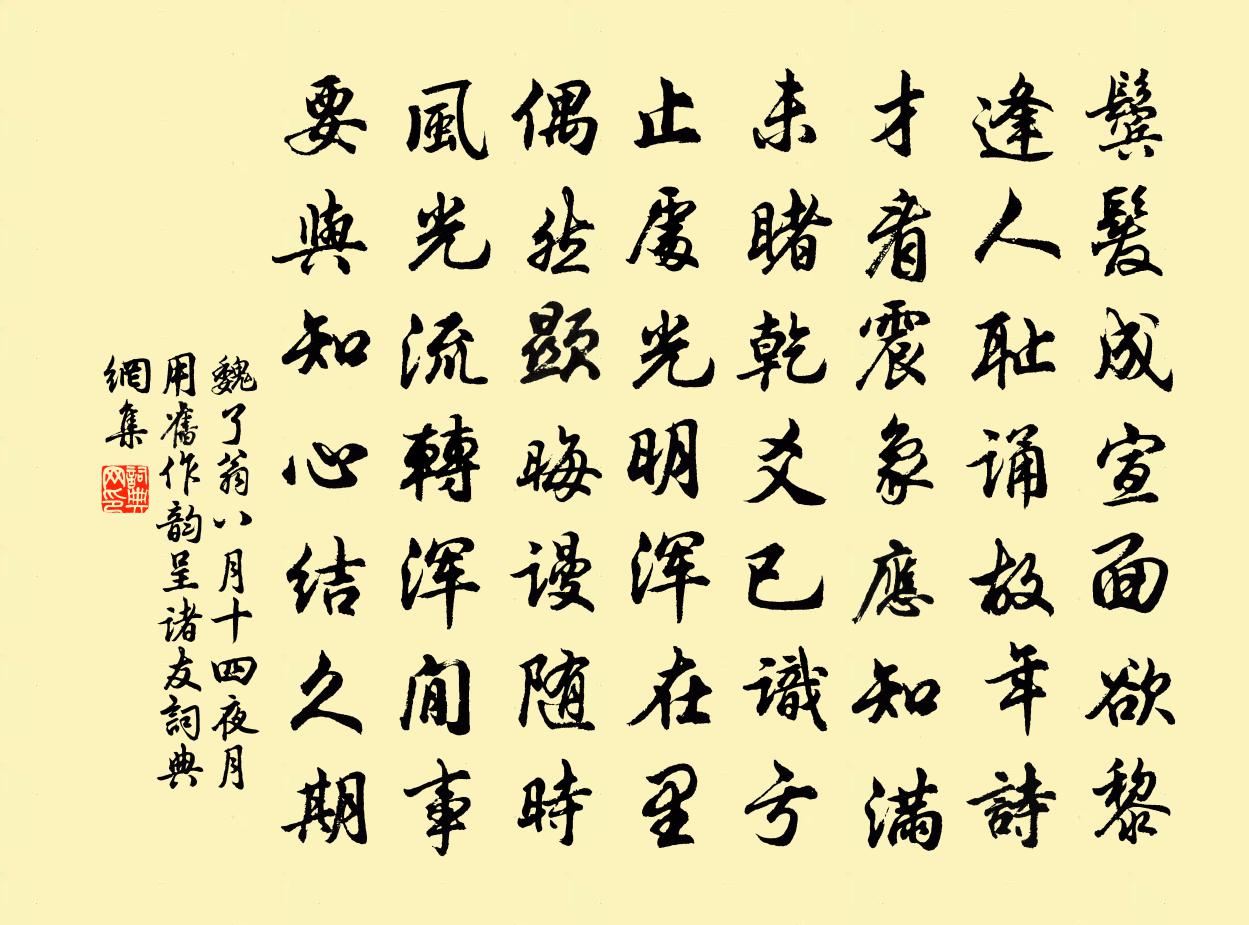 鬓髮成宣面欲黎
逢人耻诵故年詩
才看震象應知滿
未睹乾爻已識亏
止處光明浑在里
偶然顯晦谩随時
風光流轉浑閒事
要與知心结久期
魏了翁八月十四夜月
用舊作韵呈诸友詞典
網集
詞典网印